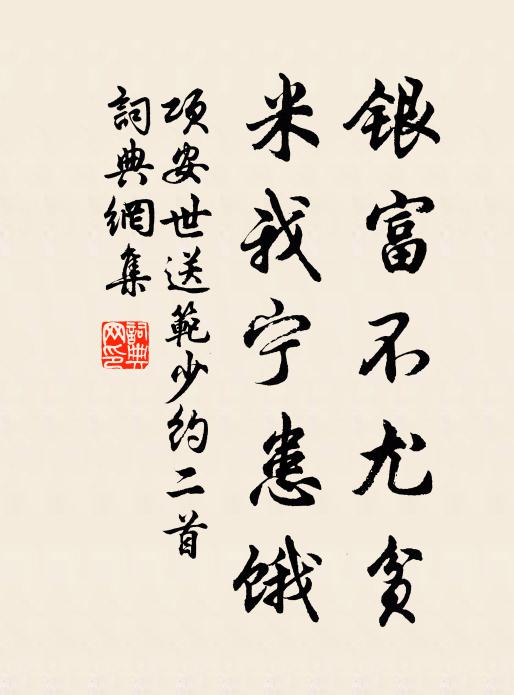 银富不尤貧
米我宁患饿
项安世送範少约二首
詞典網集
詞典网印